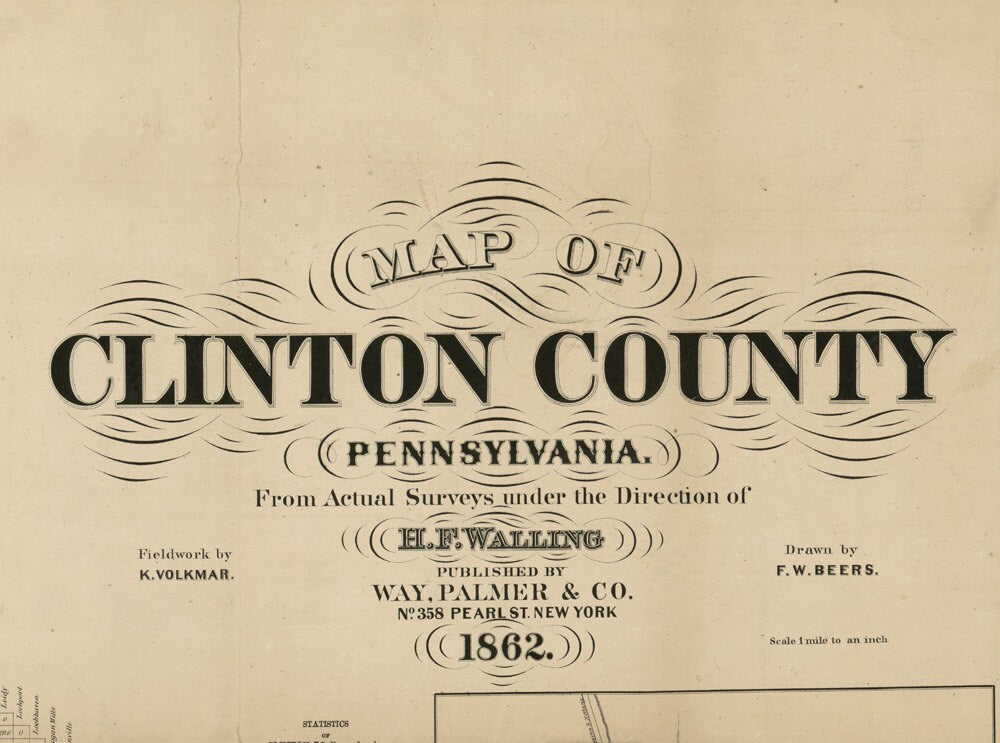 MAP OF
CLINTON COUNTY
PENNSYLVANIA.
From Actual Surveys under the Direction of
H.F. WALLING
Fieldwork by
K. VOLKMAR.
Drawn by
F. W. BEERS.
PUBLISHED BY
WAY, PALMER & CO.
No. 358 PEARL ST. NEW YORK
1862.
Scale 1 mile to an inch
Leidy
Lockport
Lockhaven
STATISTICS
OF